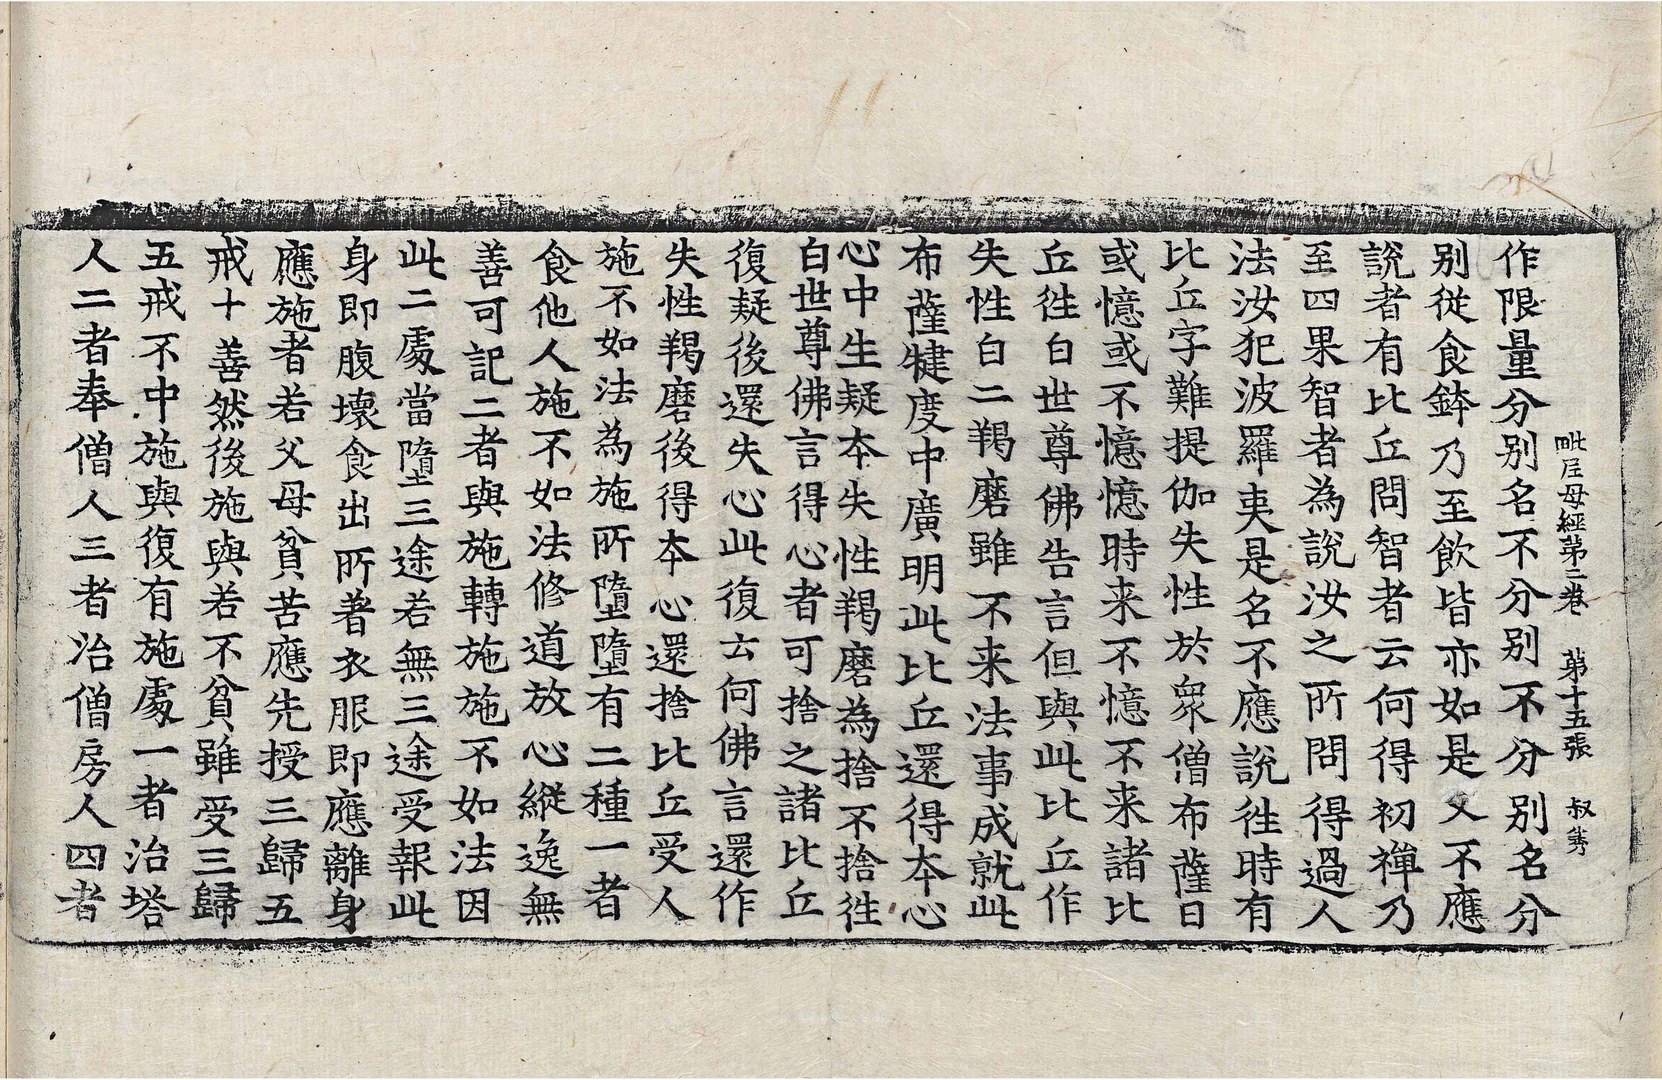 毗尼母經苐二卷 苐十五張 叔
作限量分别名不分别不分别名分
别從食鉢乃至飲皆亦如是又不應
說者有比丘問智者云何得初禪乃
至四果智者為說汝之所問得過人
法汝犯波羅夷是名不應說徃時有
比丘字難提伽失性於衆僧布薩日
或憶或不憶憶時来不憶不来諸比
丘徃白世尊佛告言但與此比丘作
失性白二羯磨雖不来法事成就此
布薩犍度中廣明此比丘還得本心
心中生疑本失性羯磨為捨不捨徃
白世尊佛言得心者可捨之諸比丘
復疑後還失心此復云何佛言還作
失性羯磨後得本心還捨比丘受人
施不如法為施所墮墮有二種一者
食他人施不如法修道放心縱逸無
善可記二者與施轉施施不如法因
此二處當墮三途若無三途受報此
身即腹壞食出所著衣服即應離身
應施者若父母貧苦應先授三歸五
戒十善然後施與若不貧雖受三歸
五戒不中施與復有施處一者治塔
人二者奉僧人三者治僧房人四者